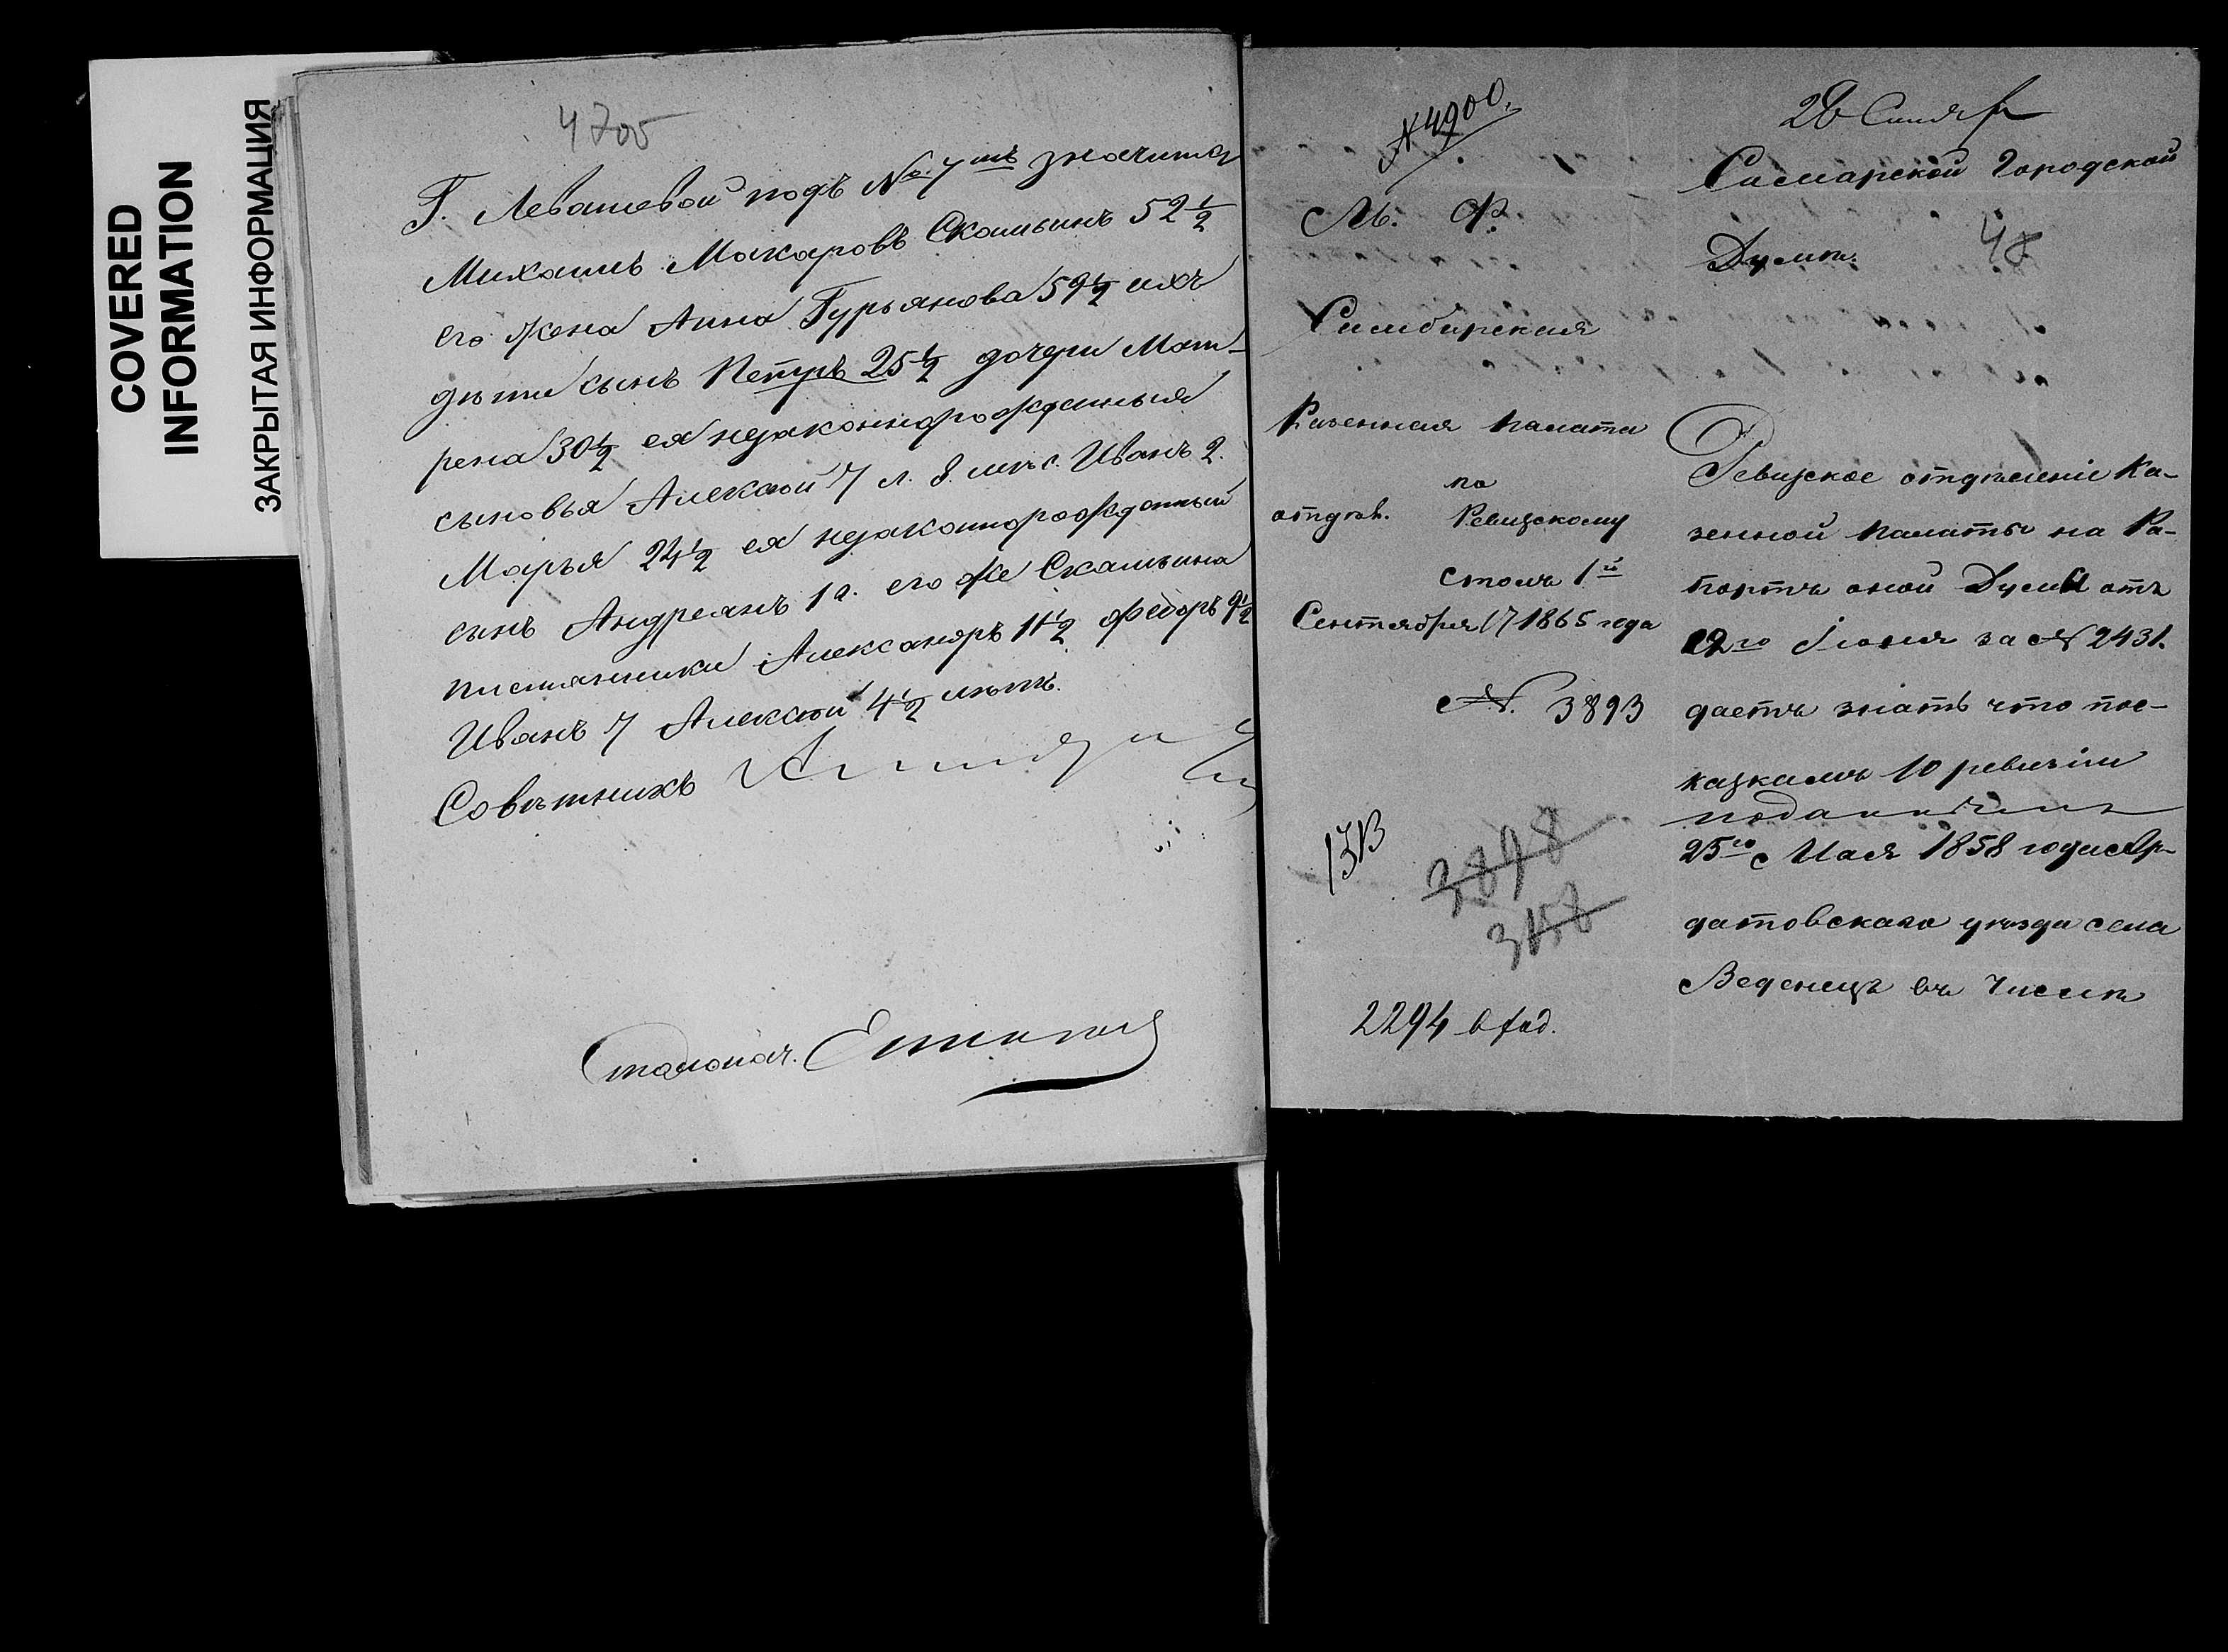 COVERED
INFORMATION
ЗАКРЫТАЯ ИНФОРМАЦИЯ
4705
Г. Левашевой подъ №. 7мъ значится
Михаилъ Макаровъ Скамьинъ 52 1/2
его жена Анна Гурьянова 59 1/2 ихъ
дѣти сынъ Петръ 25 1/2 дочери Мат-
рена 30 1/2 ея незаконнорожденныя
сыновья Алексѣй 7 л. 8. мѣс. Иванъ 2.
Марья 24 1/2 ея незаконнорожденный
сынъ Андреянъ 1 г. его же Скамьина
племянники Александръ 11 1/2 Федоръ 9 1/2
Иванъ 7 Алексѣй 4 1/2 лѣтъ.
Совѣтникъ
Столонач.
№ 4900.
М. Ф.
Симбирская
Казенная Палата
по
отдѣл. Ревизскому
столъ 1й
Сентября 17 1865 года
№. 3893
3898
3158
2294
28 Сентяб
Самарской Городской
Думѣ.
48
Ревизское отдѣленіе Ка-
зенной Палаты на Ра-
портъ оной Думы отъ
го Іюня за № 2431.
даетъ знать что по с-
казкамъ 10 ревизіи
поданнымъ
25го Мая 1858 года Ар-
датовскаго уѣзда села
Веденецъ въ числѣ